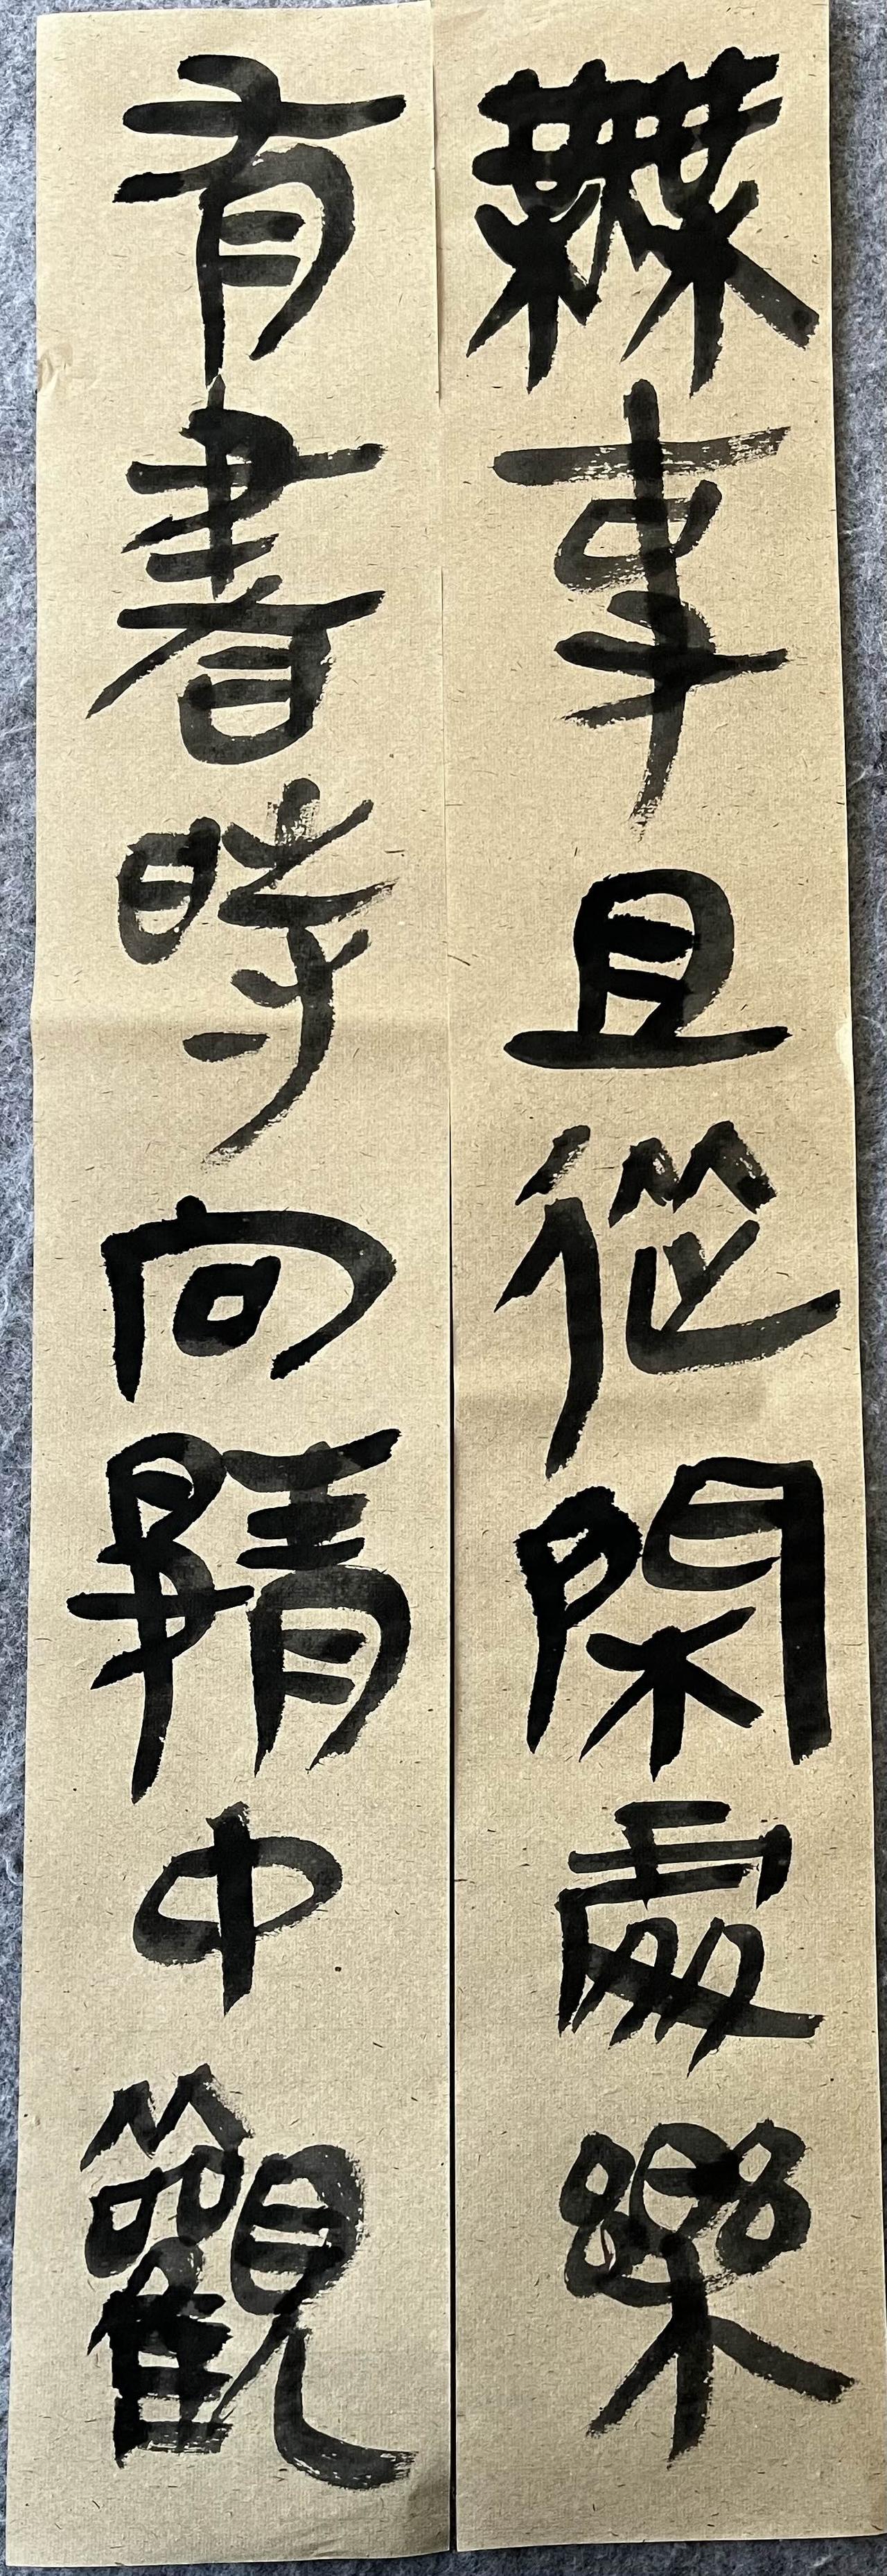 無事且從閑處樂
有書時向静中觀